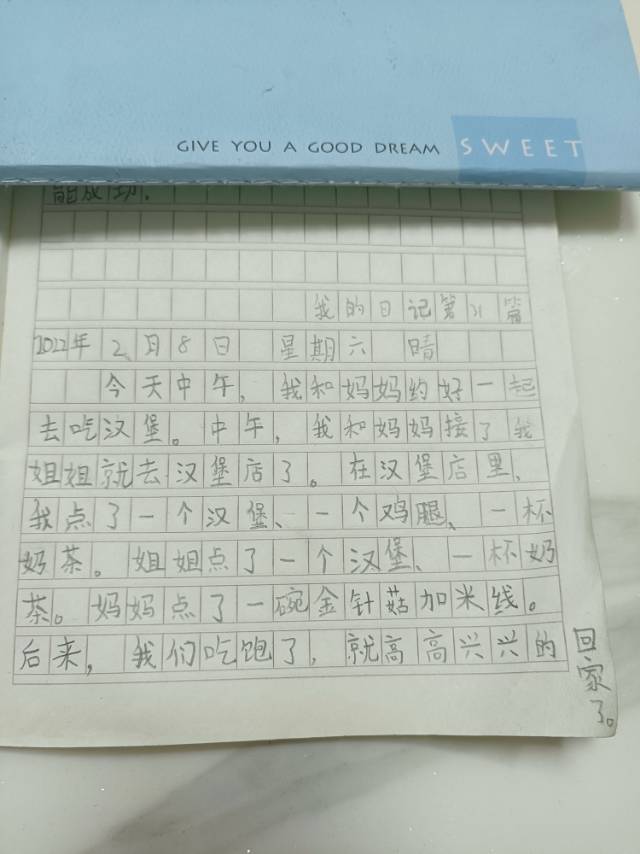 GIVE YOU A GOOD DREAM SWEET
能成功。
我的日记第21篇
2022年 2月8日 星期六 晴
今天中午，我和妈妈约好一起
去吃汉堡。中午，我和妈妈接了我
姐姐就去汉堡店了。在汉堡店里、
我点了一个汉堡、一个鸡腿、一杯
奶茶。姐姐点了一个汉堡、一杯奶
茶。妈妈点了一碗金针菇加米线。
后来，我们吃饱了，就高高兴兴的
回家了。